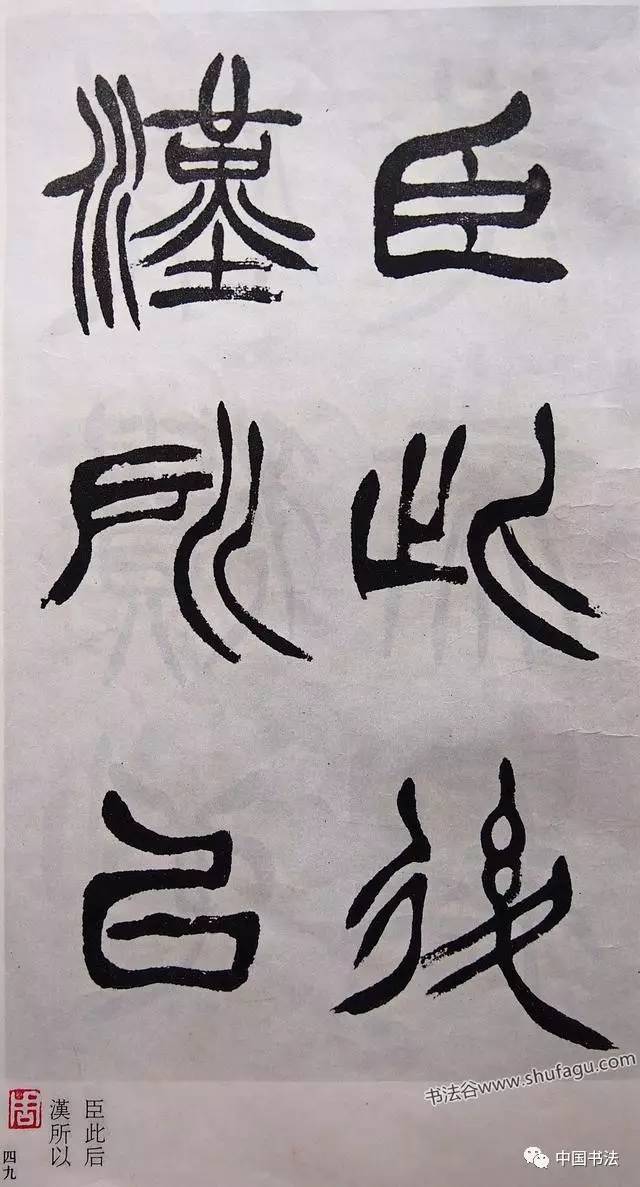 臣此後
漢所㠯
臣此后
漢所以
周
四九
书法谷www.shufagu.com
中国书法